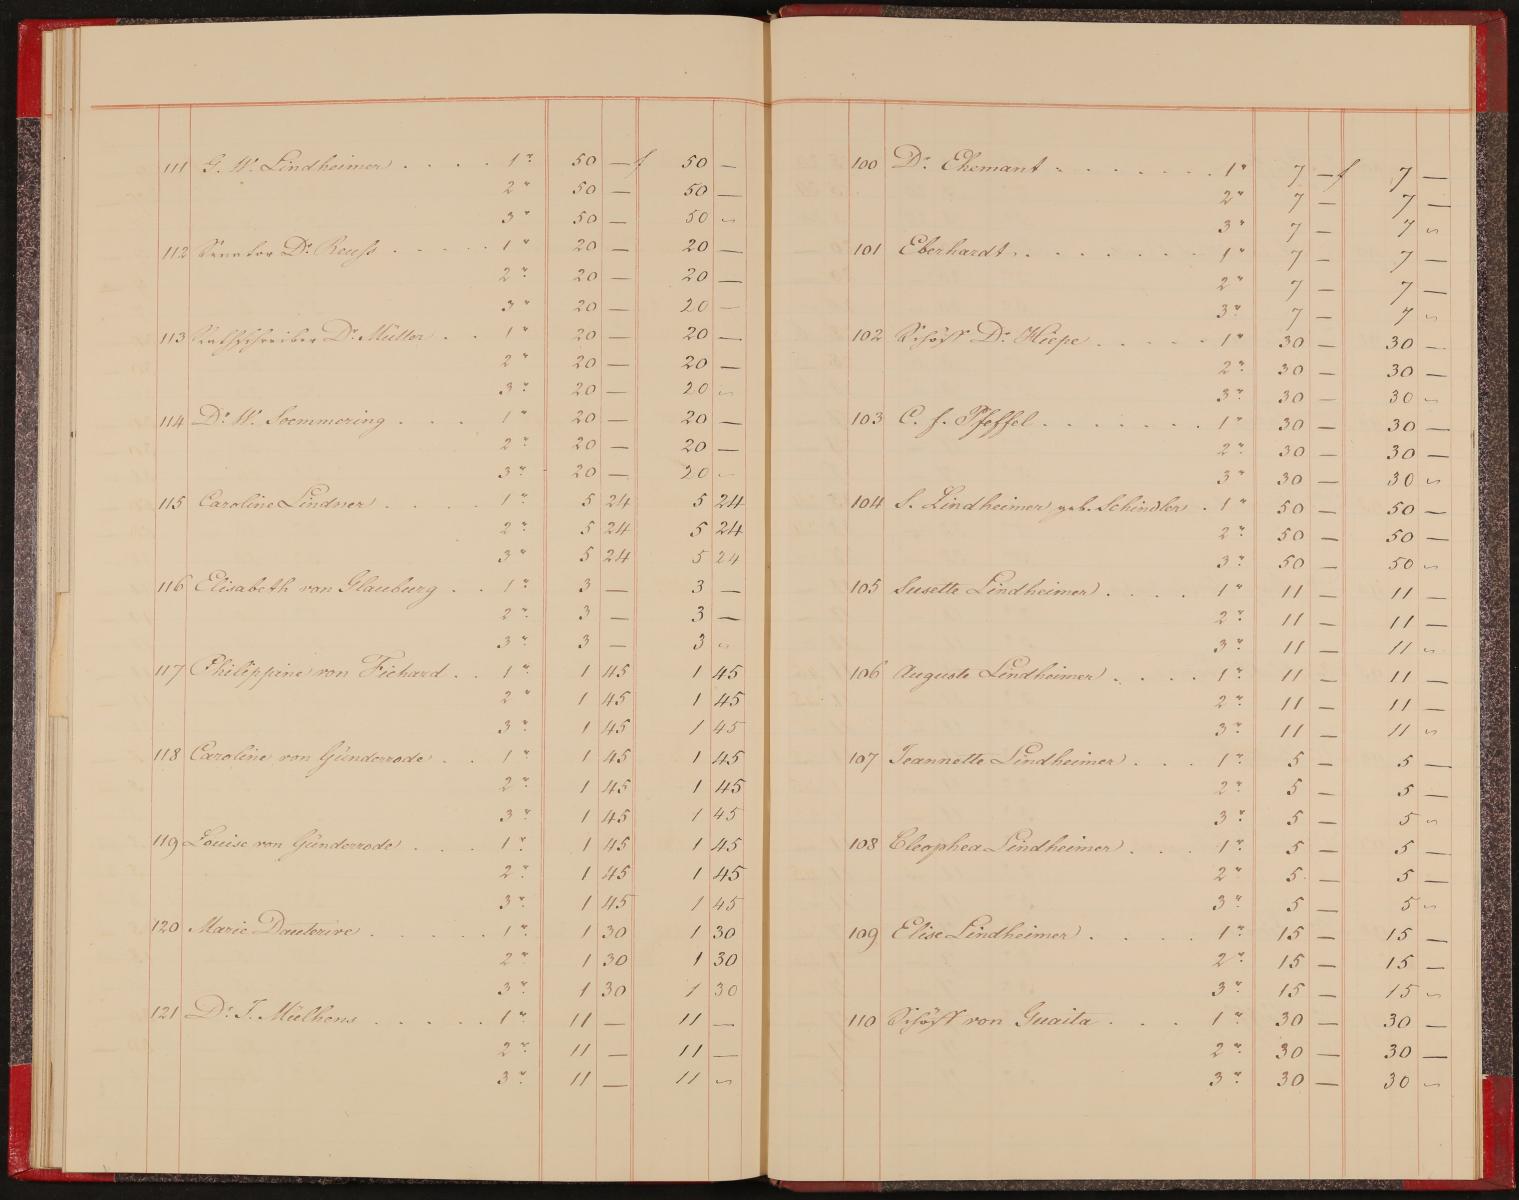 111 G. W. Lindheimer . . . . 1r 50 — f 50 —
2r 50 — 50 —
3r 50 — 50 ~
112 Senator Dr. Reuss . . . . . 1r 20 — 20 —
2r 20 — 20 —
3r 20 — 20 —
113 Rathschreiber Dr. Müller . . 1r 20 — 20 —
2r 20 — 20 —
3r 20 — 20 ~
114 Dr. W. Soemmering . . . . 1r 20 — 20 —
2r 20 — 20 —
3r 20 — 20 ~
115 Caroline Lindner . . . . . 1r 5 24 5 24
2r 5 24 5 24
3r 5 24 5 24
116 Elisabeth von Glauburg . . 1r 3 — 3 —
2r 3 — 3 —
3r 3 — 3 ~
117 Philippine von Fichard . . 1r 1 45 1 45
2r 1 45 1 45
3r 1 45 1 45
118 Caroline von Günderrode . . 1r 1 45 1 45
2r 1 45 1 45
3r 1 45 1 45
119 Louise von Günderrode . . . 1r 1 45 1 45
2r 1 45 1 45
3r 1 45 1 45
120 Marie Dauterive . . . . . . 1r 1 30 1 30
2r 1 30 1 30
3r 1 30 1 30
121 Dr. J. Mülhens . . . . . 1r 11 — 11 —
2r 11 — 11 —
3r 11 — 11 ~
100 Dr. Ehemant . . . . . . . 1r 7 — f 7 —
2r 7 — 7 —
3r 7 — 7 ~
101 Eberhardt . . . . . . . 1r 7 — 7 —
2r 7 — 7 —
3r 7 — 7 ~
102 Schöff Dr. Hiepe . . . . . 1r 30 — 30 —
2r 30 — 30 —
3r 30 — 30 ~
103 C. F. Pfeffel . . . . . . . 1r 30 — 30 —
2r 30 — 30 —
3r 30 — 30 ~
104 S. Lindheimer geb. Schindler . 1r 50 — 50 —
2r 50 — 50 —
3r 50 — 50 ~
105 Susette Lindheimer . . . . 1r 11 — 11 —
2r 11 — 11 —
3r 11 — 11 ~
106 Auguste Lindheimer . . . . 1r 11 — 11 —
2r 11 — 11 —
3r 11 — 11 ~
107 Jeannette Lindheimer . . . 1r 5 — 5 —
2r 5 — 5 —
3r 5 — 5 ~
108 Cleophea Lindheimer . . . 1r 5 — 5 —
2r 5 — 5 —
3r 5 — 5 ~
109 Elise Lindheimer . . . . 1r 15 — 15 —
2r 15 — 15 —
3r 15 — 15 ~
110 Schöff von Guaita . . . 1r 30 — 30 —
2r 30 — 30 —
3r 30 — 30 ~